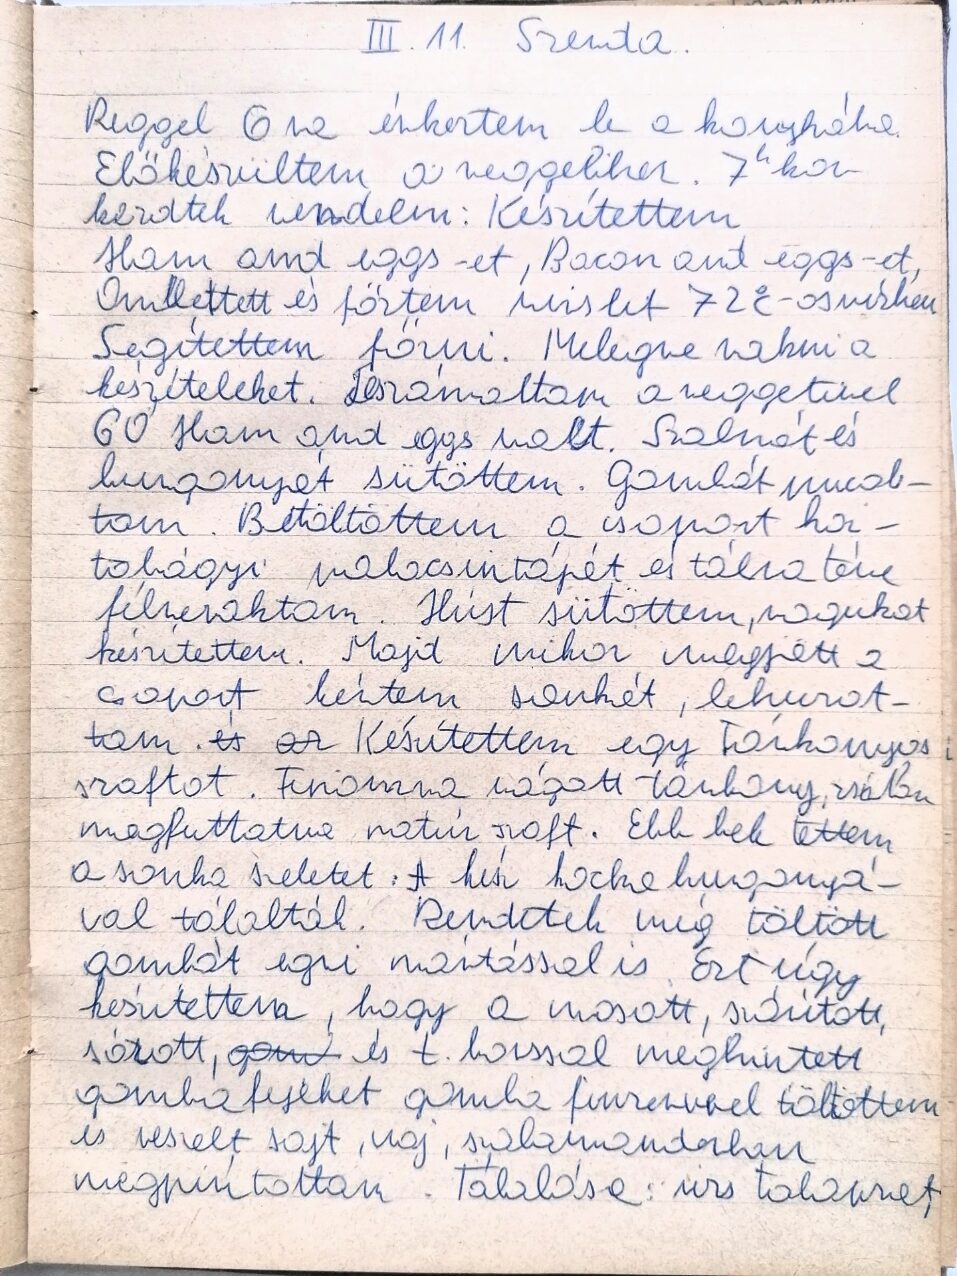 III. 11. Szerda.
Reggel 6 ra érkeztem le a konyhába.
Előkészültem a reggelihez. 7h kor
kezdtek rendelni: Készítettem
Ham and eggs-et, Bacon and eggs-et,
Omlettett és főztem 72°C-os vízben
Segítettem főzni. Melegre rakni a
készíteleket. Leszámoltam a reggelivel
60 Ham and eggs volt. Szalmát és
burgonyát sütöttem. Gombát pucol-
tam. Betöltöttem a csoport hor-
tobágyi palacsintáját és tálra téve
félreraktam. Húst sütöttem, ragukat
készítettem. Majd mikor megjött a
csoport kértem sonkát, lehuzat-
tam. és az Készítettem egy Tárkonyos
szaftot. Finomra vágott tárkony, zsírban
megfuttatva natúr szaft. Ebb bek tettem
a sonka szeletet. A kész kocka burgonyá-
val tálalták. Rendeltek még töltött
gombát egri mártással is Ezt úgy
készítettem, hogy a mosott, szárított,
sózott, és t. borssal meghintett
gombafejeket gomba finzerrel töltöttem
és reszelt sajt, vaj, szalamanderban
megpirítottam. Tálalása: